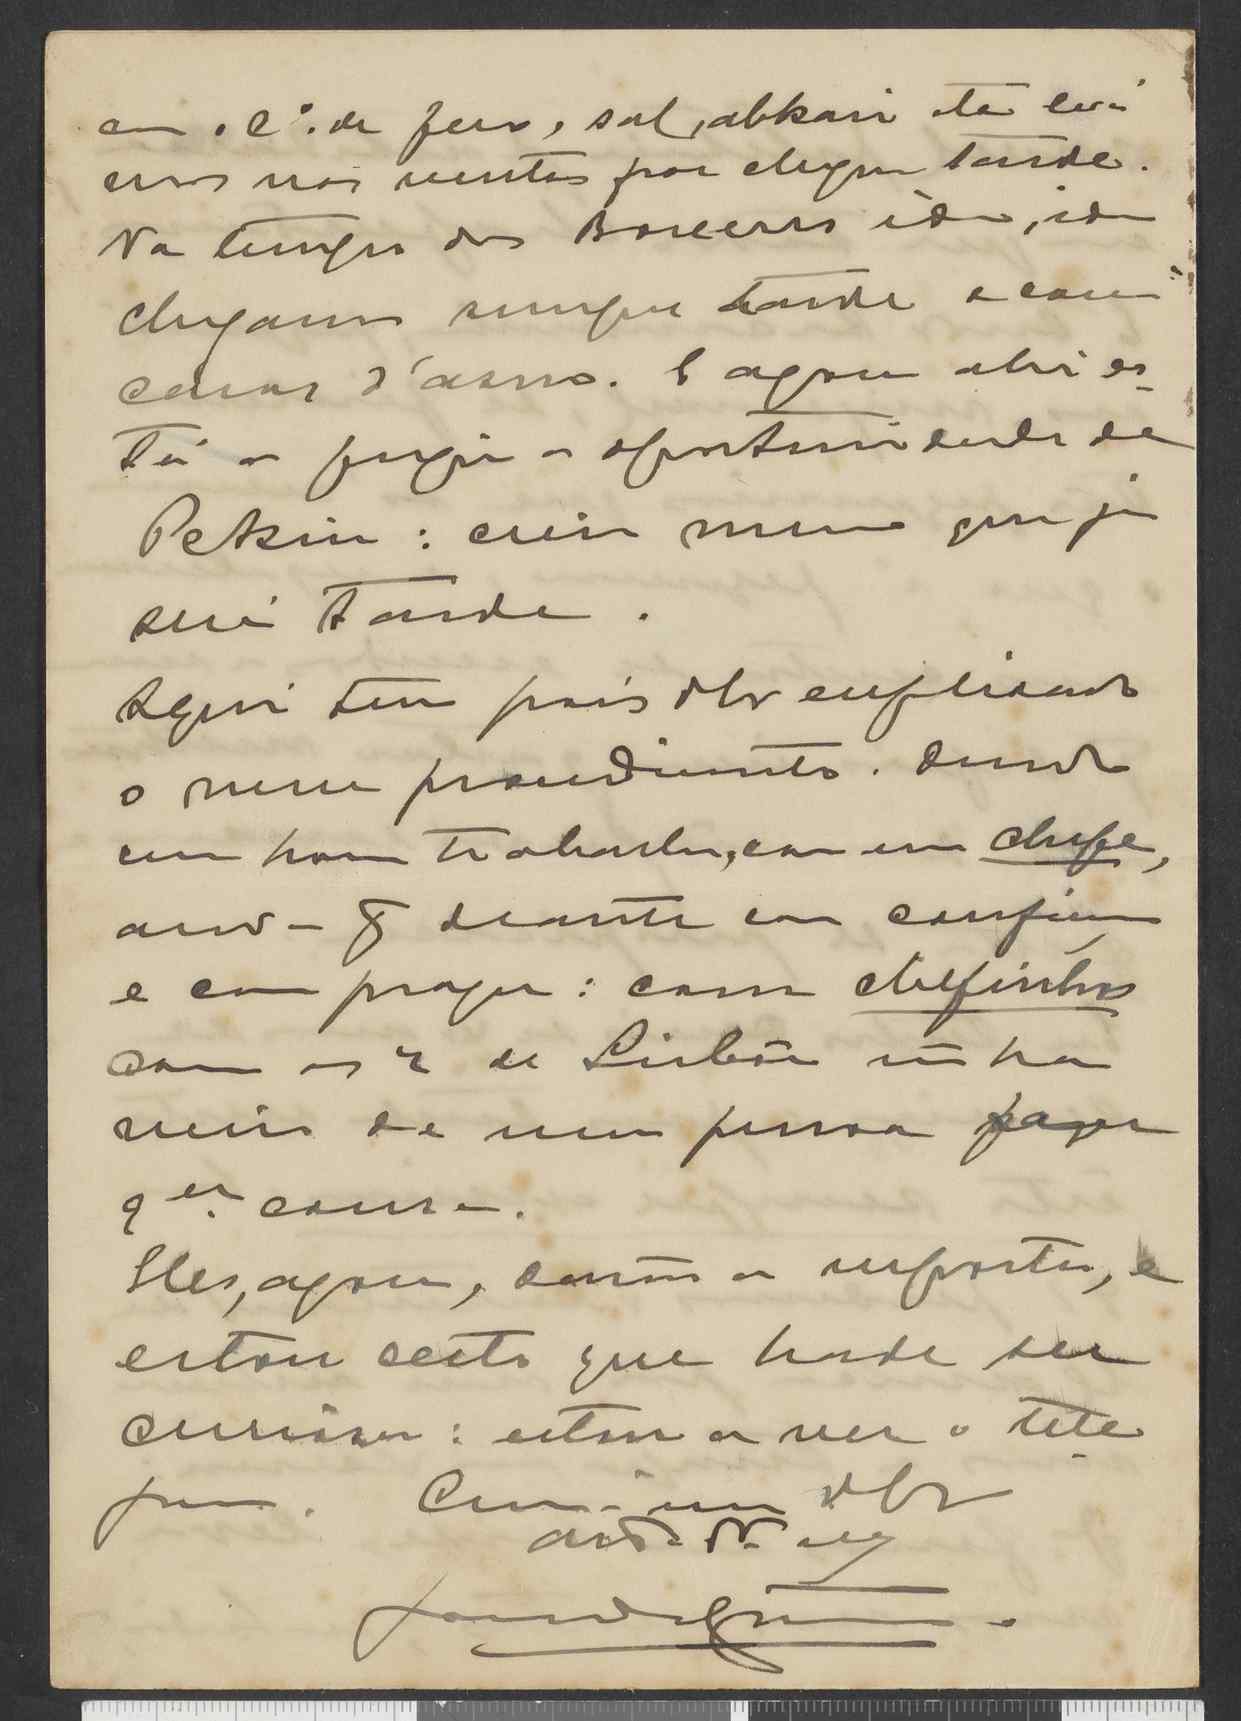 com o C.º de ferro, sal, abkari etc
nos nós ventas por chegar tarde.
No tempo dos Boxeers idem, idem
chegamos sempre tarde e com
caras d'asno. E agora ahi es-
tá a fugir a opportunidade de
Pekin: creia mesmo que já
será tarde.
Aqui tem pois VExª explicado
o meu procedimento. Quando
um homem trabalha, com um chefe,
anda-se deante com confiança
e com prazer: com chefinhos
como os de Lisbôa não ha
meio de uma pessoa fazer
qer. cousa.
Elles, agora, darão a resposta, e
estou certo que hade ser
curiosa: estou a ver o tele-
gramma. Creia-me VExª